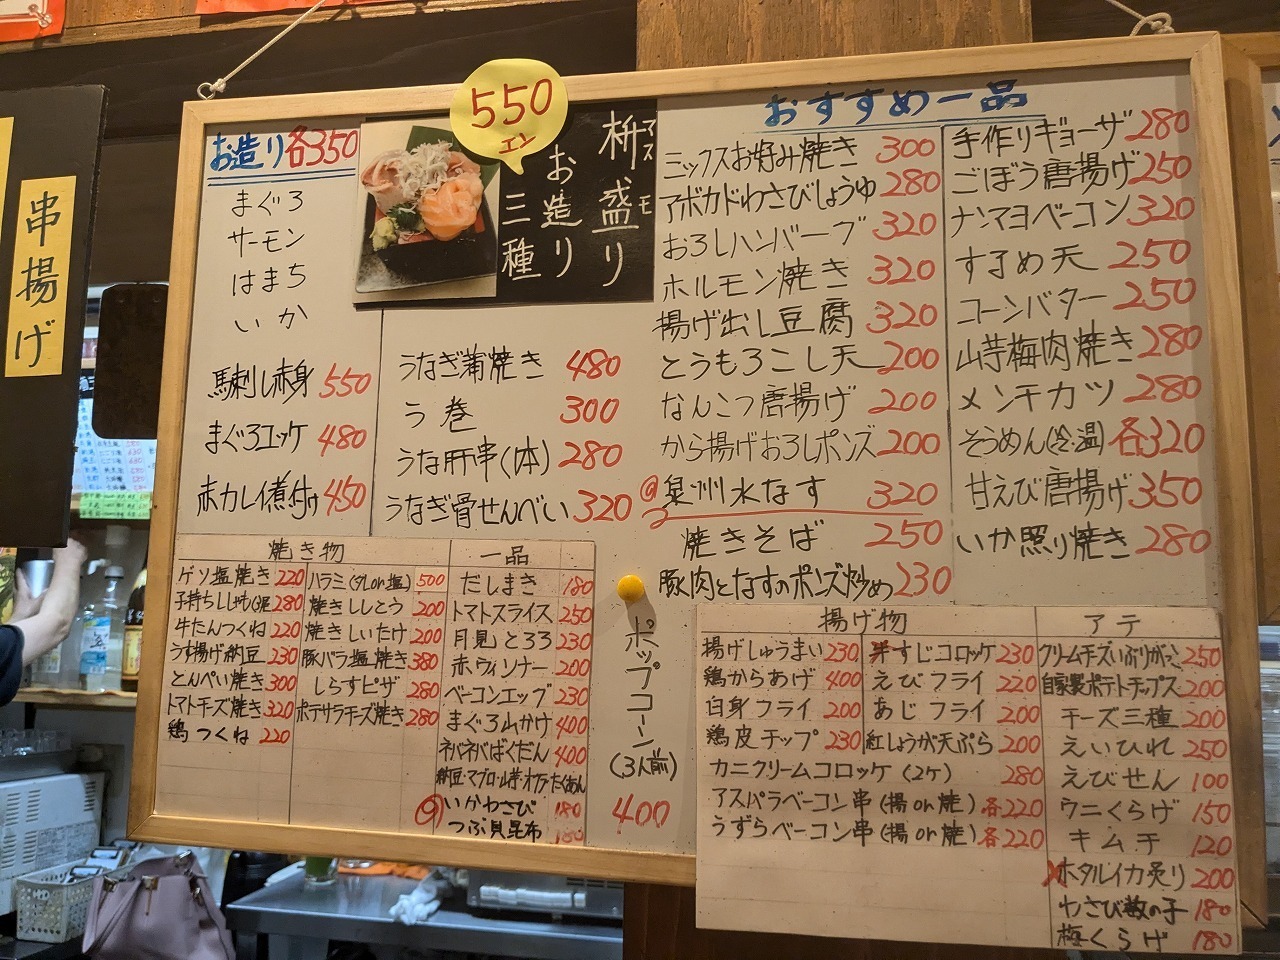 串揚げ
お造り各350
まぐろ
サーモン
はまち
いか
馬刺し赤身 550
まぐろユッケ 480
赤カレイ煮付け 450
550
エン
桝盛り
アスモ
お造り
三種
うなぎ蒲焼き 480
う巻 300
うな肝串(体) 280
うなぎ骨せんべい 320
おすすめ一品
ミックスお好み焼き 300
アボカドわさびしょうゆ 280
おろしハンバーグ 320
ホルモン焼き 320
揚げ出し豆腐 320
とうもろこし天 200
なんこつ唐揚げ 200
から揚げおろしポンズ 200
泉州水なす 320
焼きそば 250
豚肉となすのポンズ炒め 230
手作りギョーザ 280
ごぼう唐揚げ 250
ナンマヨベーコン 320
するめ天 250
コーンバター 250
山芋梅肉焼き 280
メンチカツ 280
そうめん(冷・温) 各320
甘えび唐揚げ 350
いか照り焼き 280
焼き物
ゲソ塩焼き 220
子持ちししゃも(2尾) 280
牛たんつくね 220
うす揚げ納豆 230
とんぺい焼き 300
トマトチーズ焼き 320
鶏つくね 220
ハラミ(タレor塩) 500
焼きししとう 200
焼きしいたけ 200
豚バラ塩焼き 380
しらすピザ 280
ポテサラチーズ焼き 280
一品
だしまき 180
トマトスライス 250
月見とろろ 230
赤ウィンナー 200
ベーコンエッグ 230
まぐろ山かけ 400
ネバネバばくだん 400
納豆・マグロ・山芋・オクラ・たくあん
いかわさび 180
つぶ貝昆布 180
ポップコーン(3人前)
400
揚げ物
揚げしゅうまい 230
鶏からあげ 400
白身フライ 200
鶏皮チップ 230
カニクリームコロッケ(2ケ) 280
アスパラベーコン串(揚or焼) 各220
うずらベーコン串(揚or焼) 各220
牛すじコロッケ 230
えびフライ 220
あじフライ 200
紅しょうが天ぷら 200
アテ
クリームチーズいぶりがっこ 250
自家製ポテトチップス 200
チーズ三種 200
えいひれ 250
えびせん 100
ウニくらげ 150
キムチ 120
ホタルイカ炙り 200
わさび数の子 180
梅くらげ 180